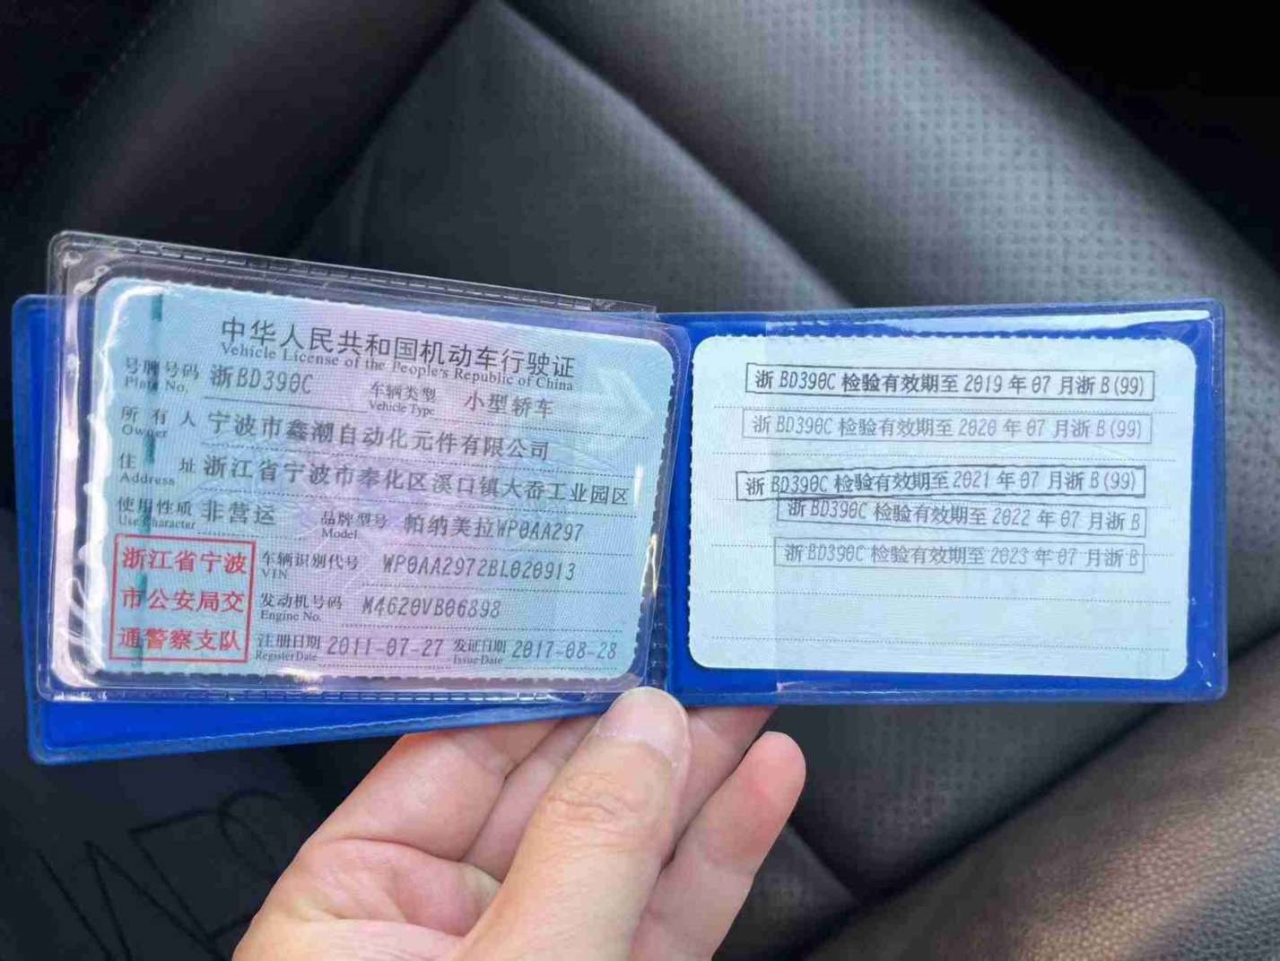 中华人民共和国机动车行驶证
Vehicle License of the People's Republic of China
号牌号码 浙BD390C 车辆类型 小型轿车
Plate No. Vehicle Type
所有人 宁波市鑫潮自动化元件有限公司
Owner
住址 浙江省宁波市奉化区溪口镇大岙工业园区
Address
使用性质 非营运 品牌型号 帕纳美拉WP0AA297
Use Character Model
浙江省宁波
市公安局交
通警察支队
车辆识别代号 WP0AA2972BL020913
VIN
发动机号码 M4620VB06898
Engine No.
注册日期 2011-07-27 发证日期 2017-08-28
Register Date Issue Date
浙BD390C 检验有效期至 2019 年 07 月浙 B(99)
浙BD390C 检验有效期至 2020 年 07 月浙 B(99)
浙BD390C 检验有效期至 2021 年 07 月浙 B(99)
浙BD390C 检验有效期至 2022 年 07 月浙 B
浙BD390C 检验有效期至 2023 年 07 月浙 B